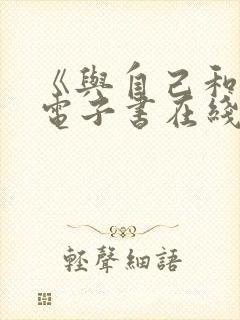 《與自己和
電子書在綫
輕聲細語